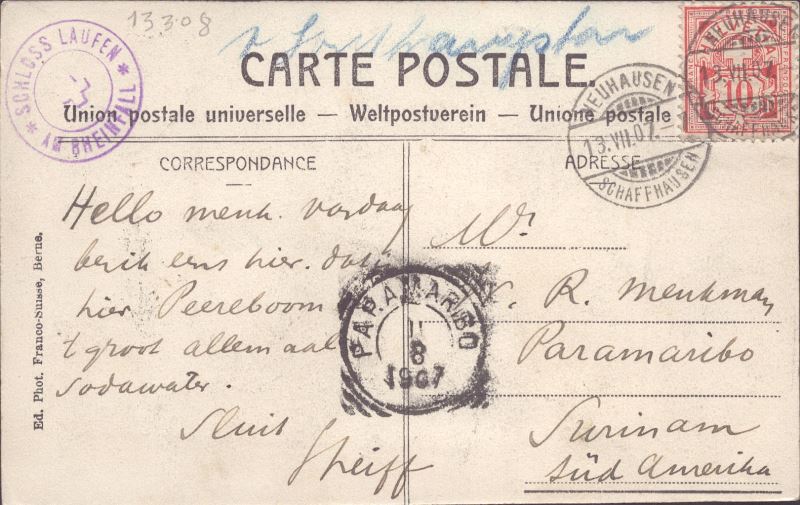 13308
SCHLOSS LAUFEN
AM RHEINFALL
CARTE POSTALE.
Union postale universelle – Weltpostverein – Unione postale
NEUHAUSEN
13.VII.07.
SCHAFFHAUSEN
NEUHAUSEN
13.VII.07
SCHAFFHAUSEN
10
CORRESPONDANCE
ADRESSE
Hello menk. vandaag
ben ik eens hier. dat
hier Peereboom
t groot allemaal
sodawater.
Sluit
Ed. Phot. Franco-Suisse, Berne.
PARAMARIBO
11
8
1907
Mr.
R. Menkman
Paramaribo
Surinam
Süd Amerika